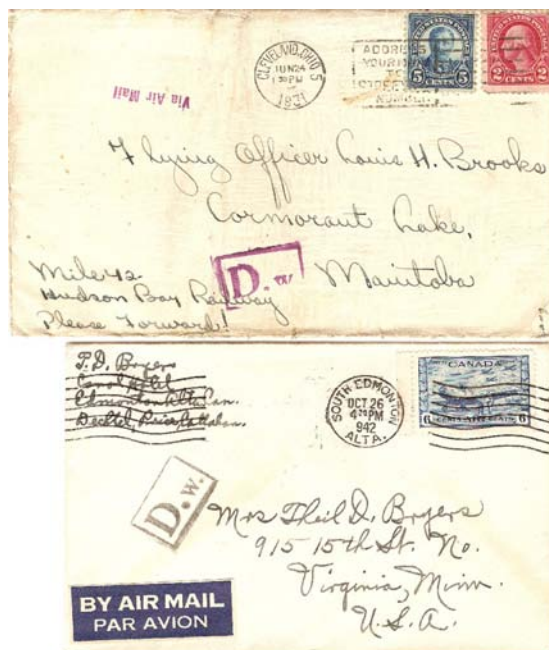 CLEVELAND, OHIO 5
JUN 24
1 30 PM
1931
ADDRESS
YOUR MAIL
TO
STREET
NUMBER
UNITED STATES POSTAGE
5 CENTS 5
2 CENTS 2
Via Air Mail
Flying Officer Louis H. Brooks
Cormorant Lake,
Manitoba
D.W
Mile 42
Hudson Bay Railway
Please Forward!
T. D. Bryers
Edmonton Alta Can.
SOUTH EDMONTON
OCT 26
4 PM
942
ALTA.
CANADA
6 6
D.W.
Mrs Theil D. Bryers
915 15th St. No.
Virginia, Minn.
U.S.A.
BY AIR MAIL
PAR AVION